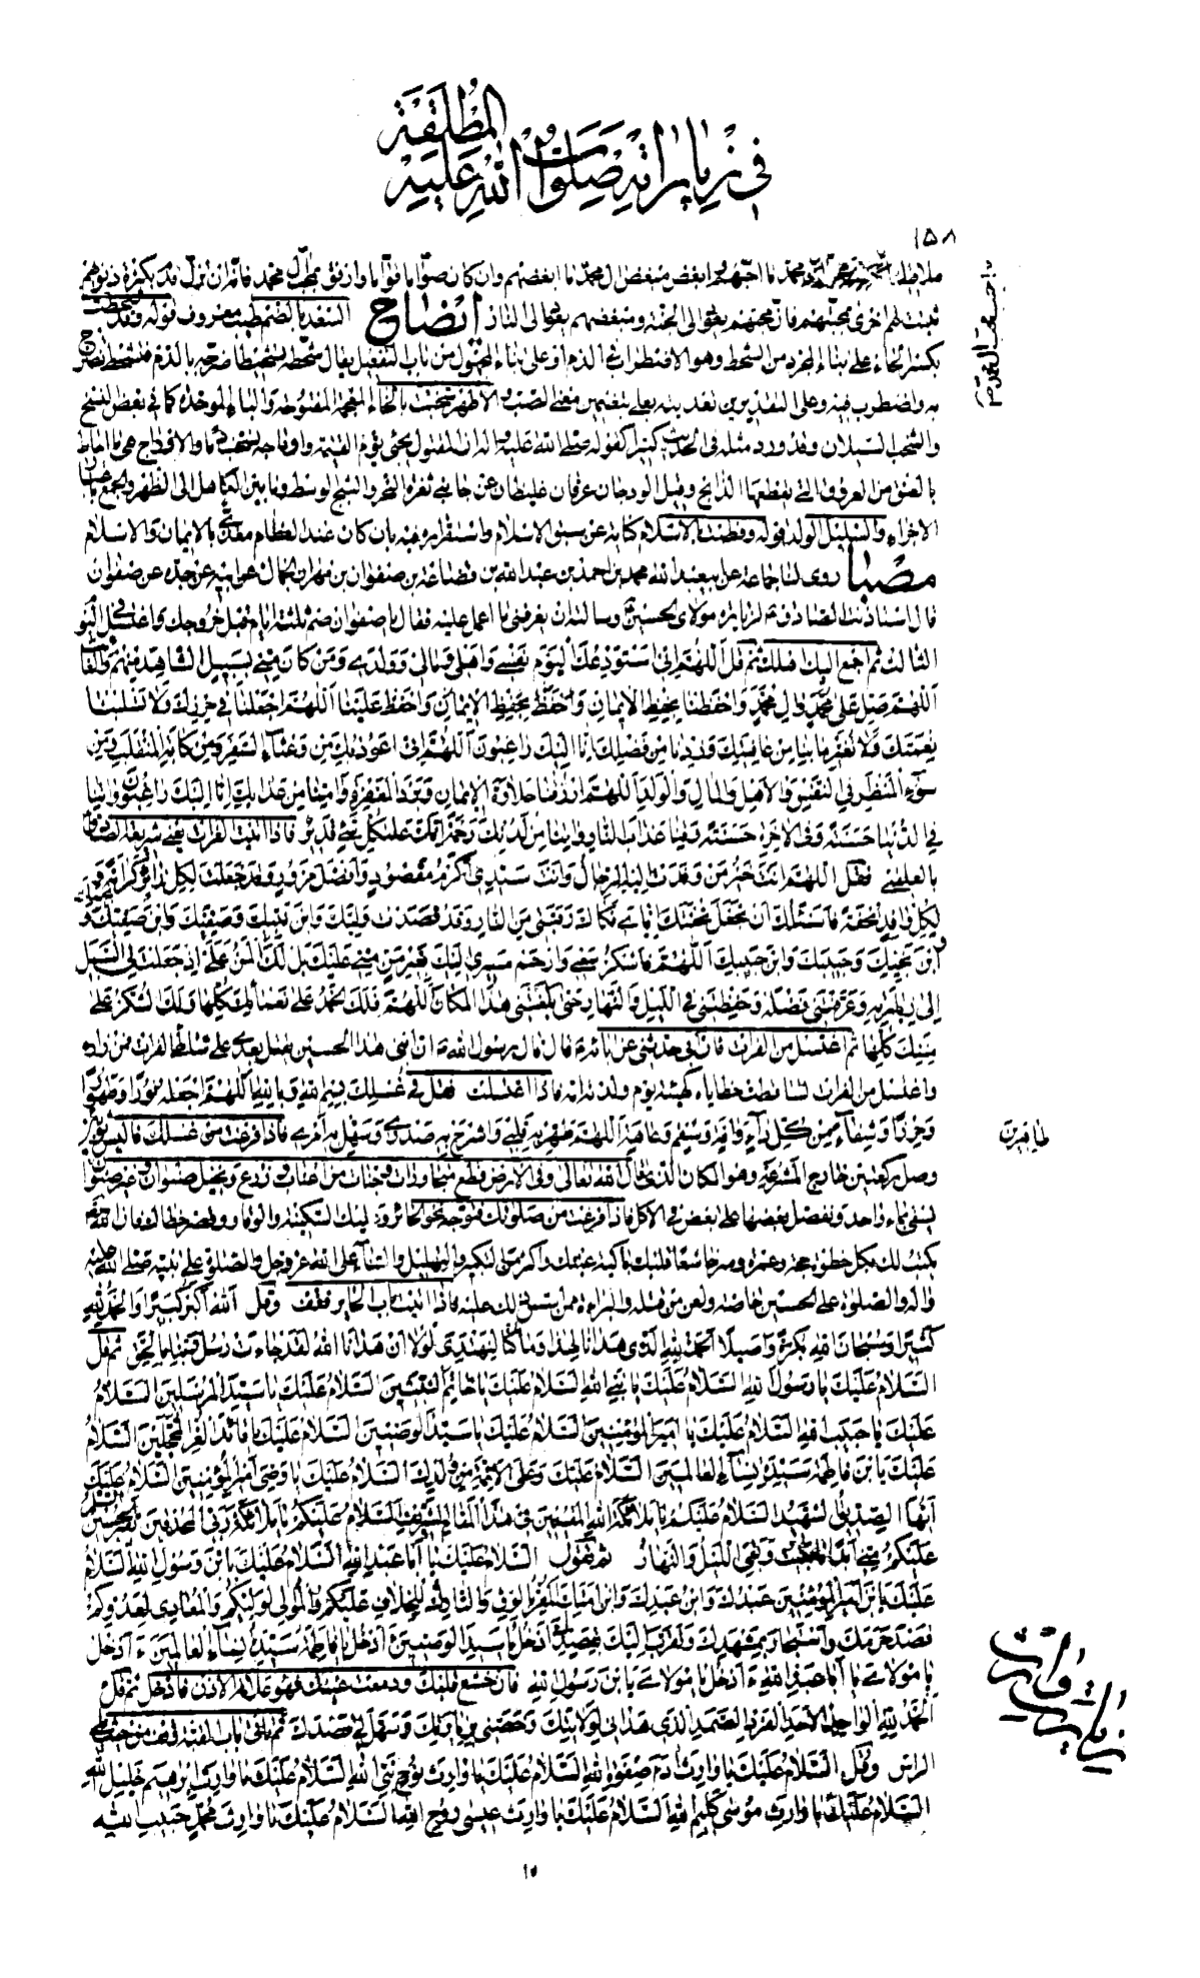 في زياراته صلوات الله عليه المطلقة
١٥٨
محمد ما احبهم و ابغض مبغض ال محمد ما ابغضهم وان كان صوّاما قوّاما وارفق بمحب محمد
ثبتت لهم اخرى بمحبتهم فان محبهم يعود الى الجنة ومبغضهم يعود الى النار ايضاح السغد بالضم طيب معروف قوله وقد
بكسر الحاء على بناء المجرد من الشحط وهو الاضطراب في الدم او على بناء المجهول من باب التفعيل يقال شحّطه تشحيطا ضرّجه بالدم فتشحّط تضرّج
به واضطرب فيه وعلى التقديرين تعديته بعلى بتضمين معنى الصب والاظهر شخبت بالخاء المعجمة المفتوحة والباء الموحدة كما في بعض النسخ
والشخب السيلان وقد ورد مثله في الحديث كثيرا كقوله صلى الله عليه واله ان المقتول يجئ يوم القيمة واوداجه تشخب دما والاوداج هي ما احاط
بالعنق من العروق التي يقطعها الذابح وقيل الودجان عرقان غليظان عن جانبي ثغرة النحر
الاجراء والسليل الولد قوله
مصبا روى لنا جماعة عن ابي عبد الله محمد بن احمد بن عبد الله بن قضاعة بن صفوان بن مهران الجمال عن ابيه عن جده عن صفوان
قال استاذنت الصادق ع لزيارة مولاى الحسين ع وسالته ان يعرفني ما اعمل عليه فقال يا صفوان صم ثلثة ايام قبل خروجك واغتسل في اليوم
الثالث ثم اجمع اليك اهلك ثم قل اَللّهُمَّ اِنّى اَسْتَوْدِعُكَ الْيَوْمَ نَفْسى وَاَهْلى وَمالى وَوَلَدى وَمَنْ كانَ مِنّى بِسَبيلٍ الشّاهِدَ مِنْهُمْ وَالْغائِبَ
اَللّهُمَّ صَلِّ عَلى مُحَمَّدٍ وَالِ مُحَمَّدٍ وَاحْفَظْنا بِحِفْظِ الْايمانِ وَاحْفَظْ عَلَيْنا اَللّهُمَّ اجْعَلْنا فى حِرْزِكَ وَلا تَسْلُبْنا
نِعْمَتَكَ وَلا تُغَيِّرْ ما بِنا مِنْ عافِيَتِكَ وَزِدْنا مِنْ فَضْلِكَ اِنّا اِلَيْكَ راغِبُونَ اَللّهُمَّ اِنّى اَعُوذُ بِكَ مِنْ وَعْثآءِ السَّفَرِ وَمِنْ كَابَةِ الْمُنْقَلَبِ وَمِنْ
سُوءِ الْمَنْظَرِ فِى النَّفْسِ وَالْاَهْلِ وَالْمالِ وَالْوَلَدِ اَللّهُمَّ ارْزُقْنا حَلاوَةَ الْايمانِ وَبَرْدَ الْمَغْفِرَةِ وَامِنّا مِنْ عَذابِكَ اِنّا اِلَيْكَ راغِبُونَ وَاتِنا
فِى الدُّنْيا حَسَنَةً وَفِى الْاخِرَةِ حَسَنَةً وَقِنا عَذابَ النّارِ وَاتِنا مِنْ لَدُنْكَ رَحْمَةً اِنَّكَ عَلى كُلِّ شَئٍ قَديرٌ فاذا اتيت الفرات يعنى شريعة الصادق
بالعلقمى فقل اَللّهُمَّ اَنْتَ خَيْرُ مَنْ وَفَدَتْ اِلَيْهِ الرِّجالُ وَاَنْتَ سَيِّدى اَكْرَمُ مَقْصُودٍ وَاَفْضَلُ مَزُورٍ وَقَدْ جَعَلْتَ لِكُلِّ زائِرٍ كَرامَةً وَ
لِكُلِّ وافِدٍ تُحْفَةً فَاَسْئَلُكَ اَنْ تَجْعَلَ تُحْفَتَكَ اِيّاىَ فَكاكَ رَقَبَتى مِنَ النّارِ وَقَدْ قَصَدْتُ وَلِيَّكَ وَابْنَ نَبِيِّكَ وَصَفِيَّكَ وَابْنَ صَفِيِّكَ وَ
ابْنَ نَجِيِّكَ وَحَبيبَكَ وَابْنَ حَبيبِكَ اَللّهُمَّ فَاشْكُرْ سَعْيى وَارْحَمْ مَسيرى اِلَيْكَ بِغَيْرِ مَنٍّ مِنّى عَلَيْكَ بَلْ لَكَ الْمَنُّ عَلَىَّ اِذْ جَعَلْتَ لِىَ السَّبيلَ
اِلى زِيارَتِهِ وَعَرَّفْتَنى فَضْلَهُ وَحَفِظْتَنى فِى اللَّيْلِ وَالنَّهارِ حَتّى بَلَّغْتَنى هذَا الْمَكانَ اَللّهُمَّ فَلَكَ الْحَمْدُ عَلى نَعْمآئِكَ كُلِّها وَلَكَ الشُّكْرُ عَلى
مِنَنِكَ كُلِّها ثم اغتسل من الفرات فان ابى حدثنى عن ابائه ع قال قال رسول الله ص ان ابنى هذا الحسين يقتل بعدى على شاطئ الفرات فمن زاره
واغتسل من الفرات تساقطت خطاياه كهيئة يوم ولدته امه فاذا اغتسلت فقل فى غسلك بِسْمِ اللهِ وَبِاللهِ اَللّهُمَّ اجْعَلْهُ نُورًا وَطَهُورًا
وَحِرْزًا وَشِفآءً مِنْ كُلِّ دآءٍ وَافَةٍ وَسُقْمٍ وَعاهَةٍ اَللّهُمَّ طَهِّرْ بِهِ قَلْبى وَاشْرَحْ بِهِ صَدْرى وَسَهِّلْ بِهِ اَمْرى فاذا فرغت من غسلك فالبس ثوبين
طاهرين
وصل ركعتين خارج المشرعة وهو المكان الذى قال الله تعالى وفى الارض قطع متجاورات وجنات من اعناب وزرع ونخيل صنوان وغير صنوان
يسقى بماء واحد ونفضل بعضها على بعض فى الاكل فاذا فرغت من صلوتك فتوجه نحو الحائر وعليك السكينة والوقار وقصر خطاك فان الله
يكتب لك بكل خطوة حجة وعمرة وسر خاشعا قلبك باكية عينك واكثر من التكبير والتهليل والثناء على الله عز وجل والصلوة على نبيه صلى الله عليه
واله والصلوة على الحسين خاصة ولعن من قتله والبراءة ممن اسس ذلك عليه فاذا اتيت باب الحاير فقف وقل اَللهُ اَكْبَرُ كَبيرًا وَالْحَمْدُ لِلّهِ
كَثيرًا وَسُبْحانَ اللهِ بُكْرَةً وَاَصيلًا اَلْحَمْدُ لِلّهِ الَّذى هَدانا لِهذا وَما كُنّا لِنَهْتَدِىَ لَوْلا اَنْ هَدانَا اللهُ لَقَدْ جاءَتْ رُسُلُ رَبِّنا بِالْحَقِّ ثم قل
اَلسَّلامُ عَلَيْكَ يا رَسُولَ اللهِ اَلسَّلامُ عَلَيْكَ يا نَبِىَّ اللهِ اَلسَّلامُ عَلَيْكَ يا خاتَمَ النَّبِيّينَ اَلسَّلامُ عَلَيْكَ يا سَيِّدَ الْمُرْسَلينَ اَلسَّلامُ
عَلَيْكَ يا حَبيبَ اللهِ اَلسَّلامُ عَلَيْكَ يا اَميرَ الْمُؤْمِنينَ اَلسَّلامُ عَلَيْكَ يا سَيِّدَ الْوَصِيّينَ اَلسَّلامُ عَلَيْكَ يا قائِدَ الْغُرِّ الْمُحَجَّلينَ اَلسَّلامُ
عَلَيْكَ يَا بْنَ فاطِمَةَ سَيِّدَةِ نِسآءِ الْعالَمينَ اَلسَّلامُ عَلَيْكَ وَعَلَى الْاَئِمَّةِ مِنْ وُلْدِكَ اَلسَّلامُ عَلَيْكَ يا وَصِىَّ اَميرِ الْمُؤْمِنينَ اَلسَّلامُ عَلَيْكَ
اَيُّهَا الصِّدّيقُ الشَّهيدُ اَلسَّلامُ عَلَيْكُمْ يا مَلائِكَةَ اللهِ الْمُقيمينَ فى هذَا الْمَقامِ الشَّريفِ اَلسَّلامُ عَلَيْكُمْ يا مَلائِكَةَ رَبِّى الْمُحْدِقينَ بِقَبْرِ الْحُسَيْنِ
عَلَيْكُمْ مِنّى اَبَدًا ما بَقيتُ وَبَقِىَ اللَّيْلُ وَالنَّهارُ ثم تقول اَلسَّلامُ عَلَيْكَ يا اَبا عَبْدِ اللهِ اَلسَّلامُ عَلَيْكَ يَا بْنَ رَسُولِ اللهِ اَلسَّلامُ
عَلَيْكَ يَا بْنَ اَميرِ الْمُؤْمِنينَ عَبْدُكَ وَابْنُ عَبْدِكَ وَابْنُ اَمَتِكَ الْمُقِرُّ بِالرِّقِّ وَالتّارِكُ لِلْخِلافِ عَلَيْكُمْ وَالْمُوالى لِوَلِيِّكُمْ وَالْمُعادى لِعَدُوِّكُمْ
قَصَدَ حَرَمَكَ وَاسْتَجارَ بِمَشْهَدِكَ وَتَقَرَّبَ اِلَيْكَ بِقَصْدِكَ ءَاَدْخُلُ يا سَيِّدَ الْوَصِيّينَ ءَاَدْخُلُ يا فاطِمَةُ سَيِّدَةَ نِسآءِ الْعالَمينَ ءَاَدْخُلُ
يا مَوْلاىَ يا اَبا عَبْدِ اللهِ ءَاَدْخُلُ يا مَوْلاىَ يَا بْنَ رَسُولِ اللهِ فان خشع قلبك ودمعت عينك فهو علامة الاذن فادخل ثم قل
زيارت وارث
اَلْحَمْدُ لِلّهِ الْواحِدِ الْاَحَدِ الْفَرْدِ الصَّمَدِ الَّذى هَدانى لِوِلايَتِكَ وَخَصَّنى بِزِيارَتِكَ وَسَهَّلَ لى قَصْدَكَ ثم تاتى باب القبة وقف من حيث يلى
الراس وقل اَلسَّلامُ عَلَيْكَ يا وارِثَ ادَمَ صَفْوَةِ اللهِ اَلسَّلامُ عَلَيْكَ يا وارِثَ نُوحٍ نَبِىِّ اللهِ اَلسَّلامُ عَلَيْكَ يا وارِثَ اِبْرهيمَ خَليلِ اللهِ
اَلسَّلامُ عَلَيْكَ يا وارِثَ مُوسى كَليمِ اللهِ اَلسَّلامُ عَلَيْكَ يا وارِثَ عيسى رُوحِ اللهِ اَلسَّلامُ عَلَيْكَ يا وارِثَ مُحَمَّدٍ حَبيبِ اللهِ